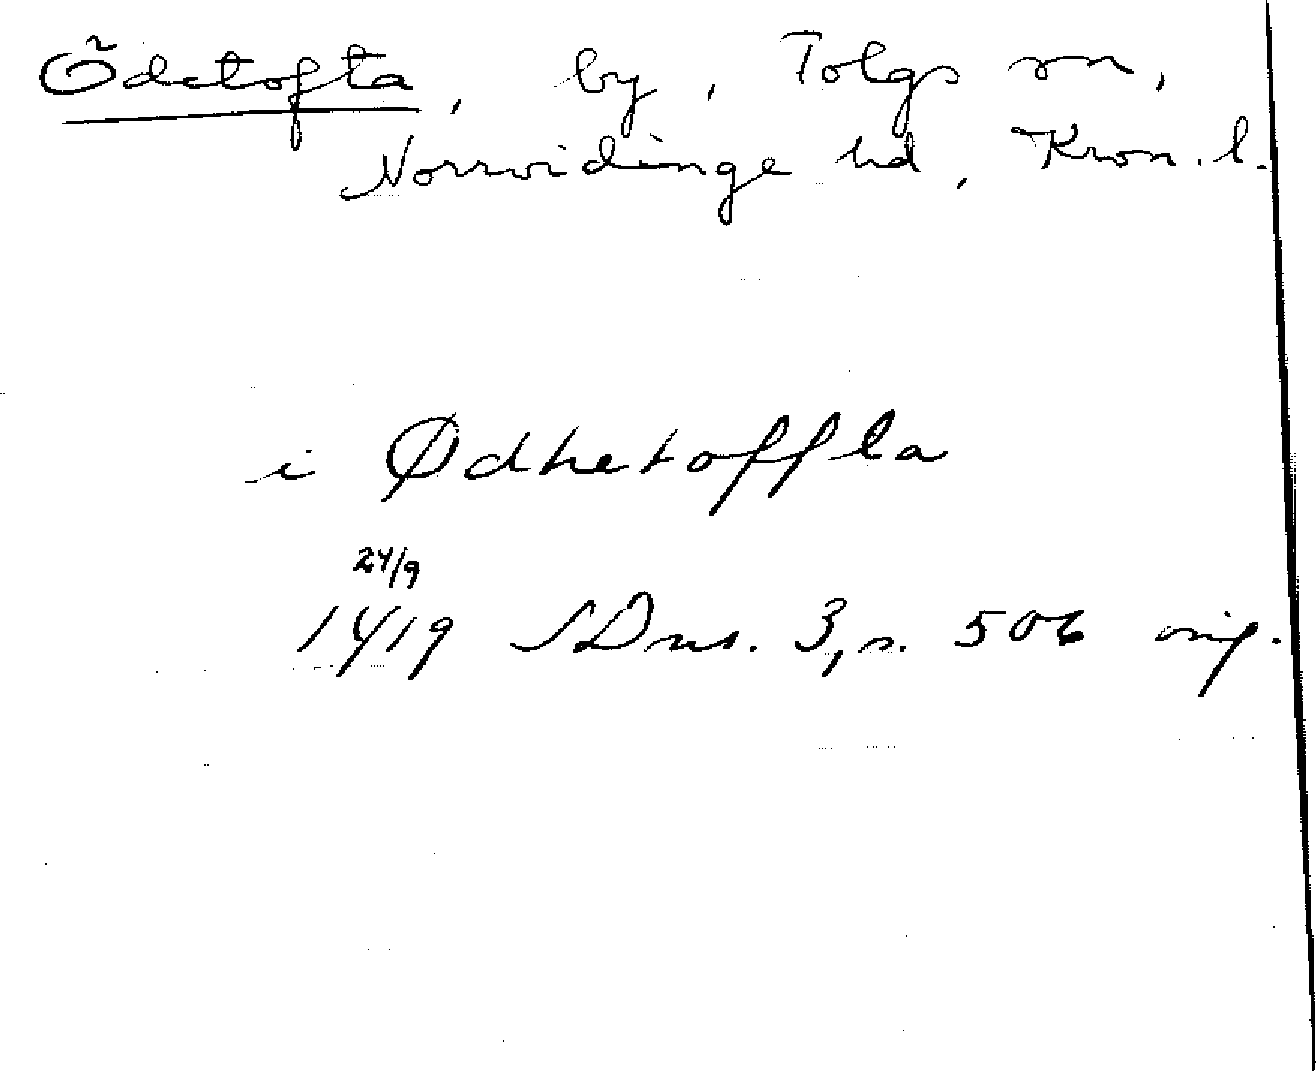 Ödetofta, by, Tolgs sn,
Norrvidinge hd, Kron. l.
i Ødhetoffta
24/9
1419 SDns. 3, s. 506 orig.